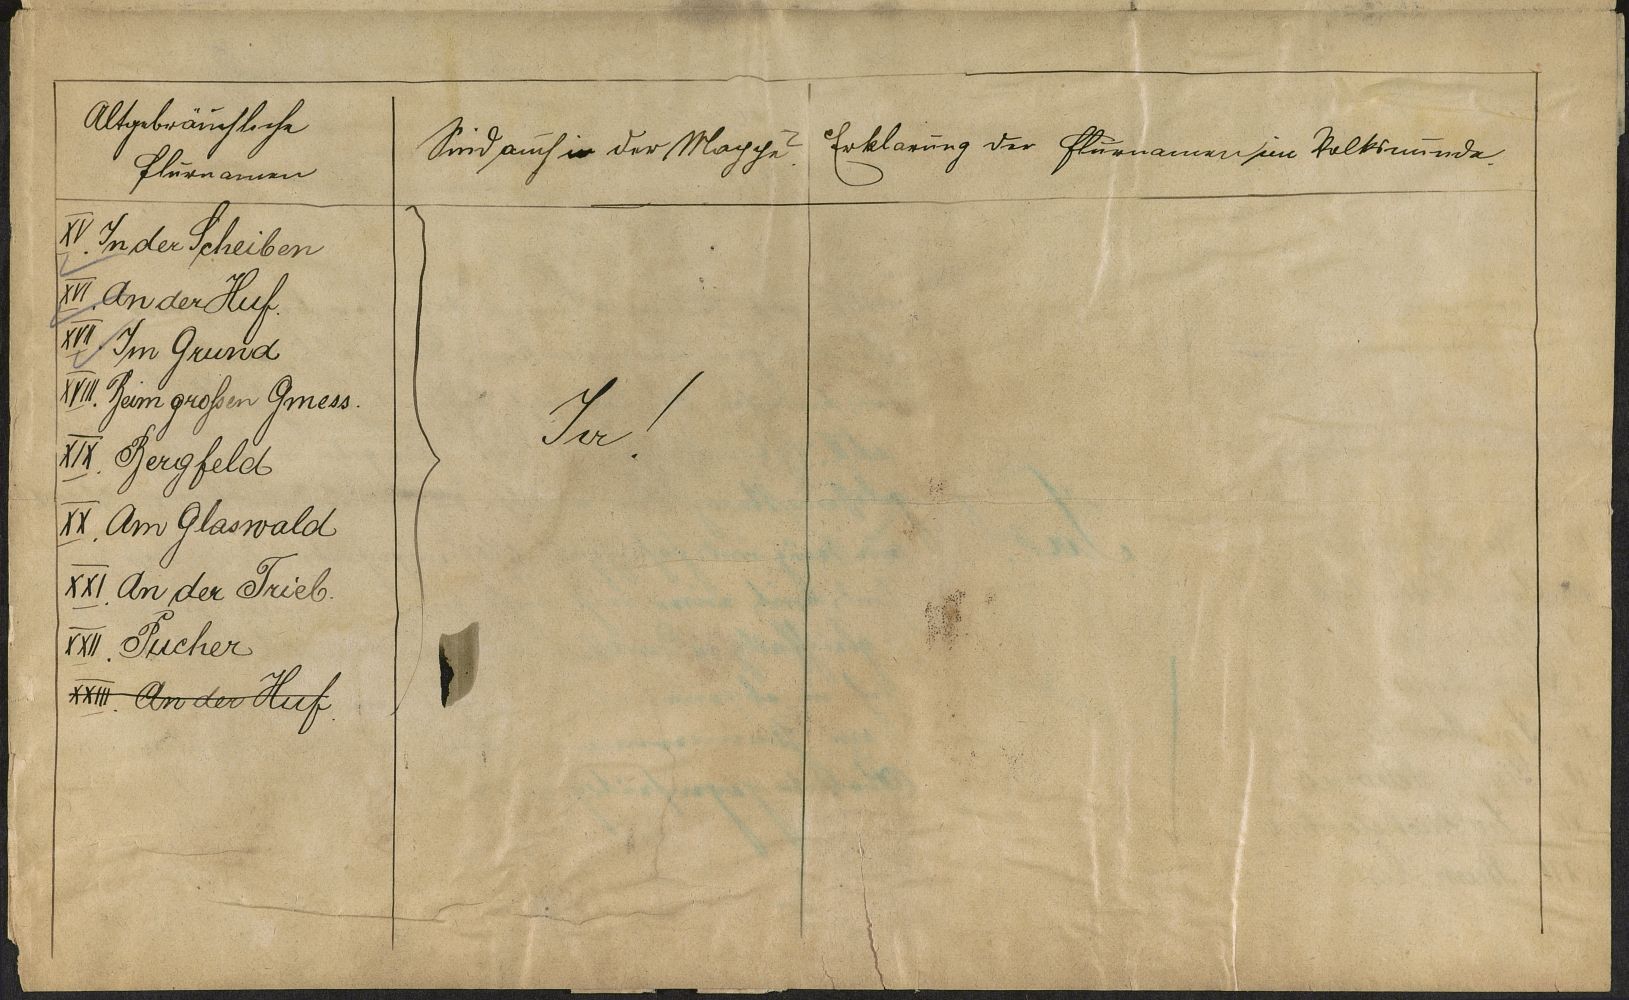 Altgebräuchliche
Flurnamen
Sind auch in der Mappe?
Erklärung der Flurnamen im Volksmunde.
XV. In der Scheiben
XVI. An der Huf.
XVII. Im Grund
XVIII. Beim großen Gmess.
XIX. Bergfeld
XX. Am Glaswald
XXI. An der Trieb.
XXII. Pucher
XXIII. An der Huf.
Ja!